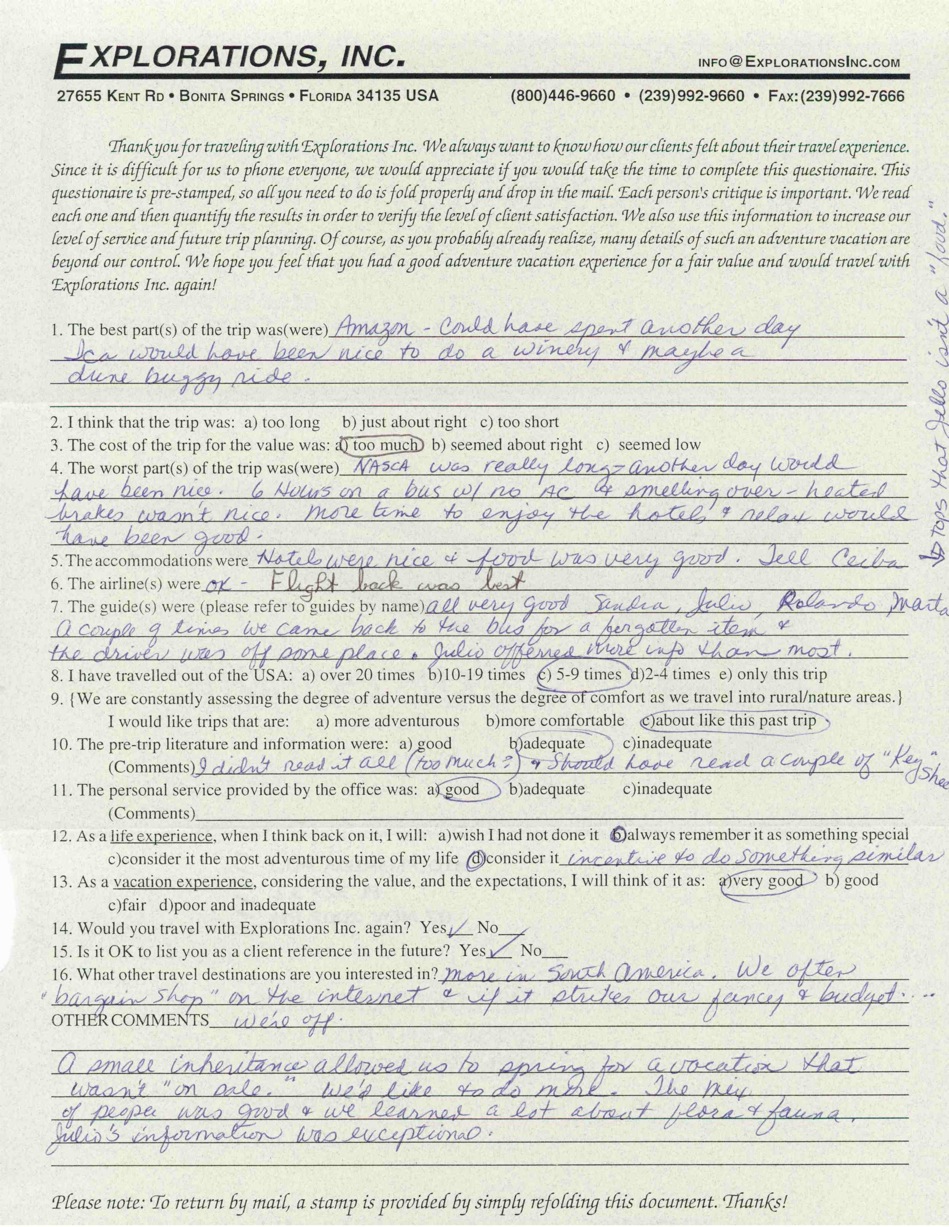 EXPLORATIONS, INC.
INFO@EXPLORATIONSINC.COM
27655 KENT RD • BONITA SPRINGS • FLORIDA 34135 USA (800)446-9660 • (239)992-9660 • FAX:(239)992-7666
Thank you for traveling with Explorations Inc. We always want to know how our clients felt about their travel experience.
Since it is difficult for us to phone everyone, we would appreciate if you would take the time to complete this questionaire. This
questionaire is pre-stamped, so all you need to do is fold properly and drop in the mail. Each person's critique is important. We read
each one and then quantify the results in order to verify the level of client satisfaction. We also use this information to increase our
level of service and future trip planning. Of course, as you probably already realize, many details of such an adventure vacation are
beyond our control. We hope you feel that you had a good adventure vacation experience for a fair value and would travel with
Explorations Inc. again!
1. The best part(s) of the trip was(were) Amazon - Could have spent another day
Ica would have been nice to do a winery & maybe a
dune buggy ride.
2. I think that the trip was: a) too long b) just about right c) too short
3. The cost of the trip for the value was: a) too much b) seemed about right c) seemed low
4. The worst part(s) of the trip was(were) NASCA was really long - another day would
have been nice. 6 Hours on a bus w/ no AC & smelling over-heated
brakes wasn't nice. More time to enjoy the hotels & relax would
have been good.
5. The accommodations were Hotels were nice & food was very good. Tell Ceiba
TOPS that Jello isn't a "food."
6. The airline(s) were OK - Flight back was best
7. The guide(s) were (please refer to guides by name) all very good Sandra, Julio, Rolando Marta
A couple of times we came back to the bus for a forgotten item &
the driver was off some place. Julio offerred more info than most.
8. I have travelled out of the USA: a) over 20 times b)10-19 times c) 5-9 times d)2-4 times e) only this trip
9. {We are constantly assessing the degree of adventure versus the degree of comfort as we travel into rural/nature areas.}
I would like trips that are: a) more adventurous b)more comfortable c)about like this past trip
10. The pre-trip literature and information were: a) good b)adequate c)inadequate
(Comments) I didn't read it all (too much?) & Should have read a couple of "Key" Shee
11. The personal service provided by the office was: a) good b)adequate c)inadequate
(Comments)
12. As a life experience, when I think back on it, I will: a)wish I had not done it b)always remember it as something special
c)consider it the most adventurous time of my life d)consider it incentive to do something similar
13. As a vacation experience, considering the value, and the expectations, I will think of it as: a)very good b) good
c)fair d)poor and inadequate
14. Would you travel with Explorations Inc. again? Yes ✓ No
15. Is it OK to list you as a client reference in the future? Yes ✓ No
16. What other travel destinations are you interested in? More in South America. We often
"bargain shop" on the internet & if it strikes our fancy & budget....
OTHER COMMENTS we're off.
A small inheritance allowed us to spring for a vacation that
wasn't "on sale." We'd like to do more. The mix
of people was good & we learned a lot about flora & fauna.
Julio's information was exceptional.
Please note: To return by mail, a stamp is provided by simply refolding this document. Thanks!